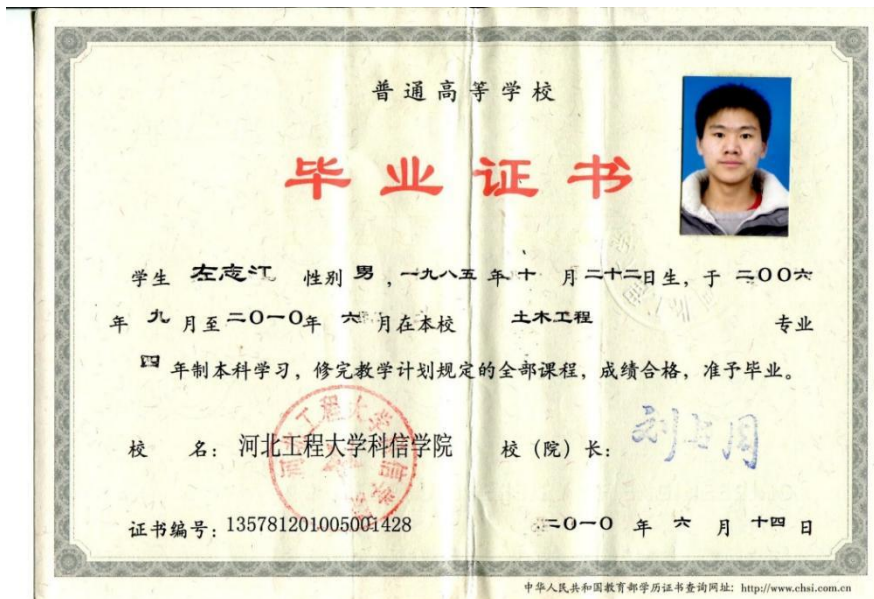 普通高等学校
毕业证书
学生 左志江 性别 男，一九八五 年 十 月二十二日生，于 二〇〇六
年 九 月至二〇一〇年 六 月在本校 土木工程 专业
四 年制本科学习，修完教学计划规定的全部课程，成绩合格，准予毕业。
校 名：河北工程大学科信学院 校（院）长：刘占月
河北工程大学科信学院
证书编号：135781201005001428 二〇一〇 年 六 月 十四 日
中华人民共和国教育部学历证书查询网址：http://www.chsi.com.cn